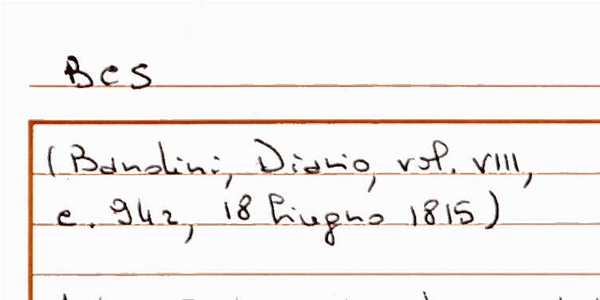 BCS
(Bandini, Diario, vol. VIII,
c. 942, 18 Giugno 1815)